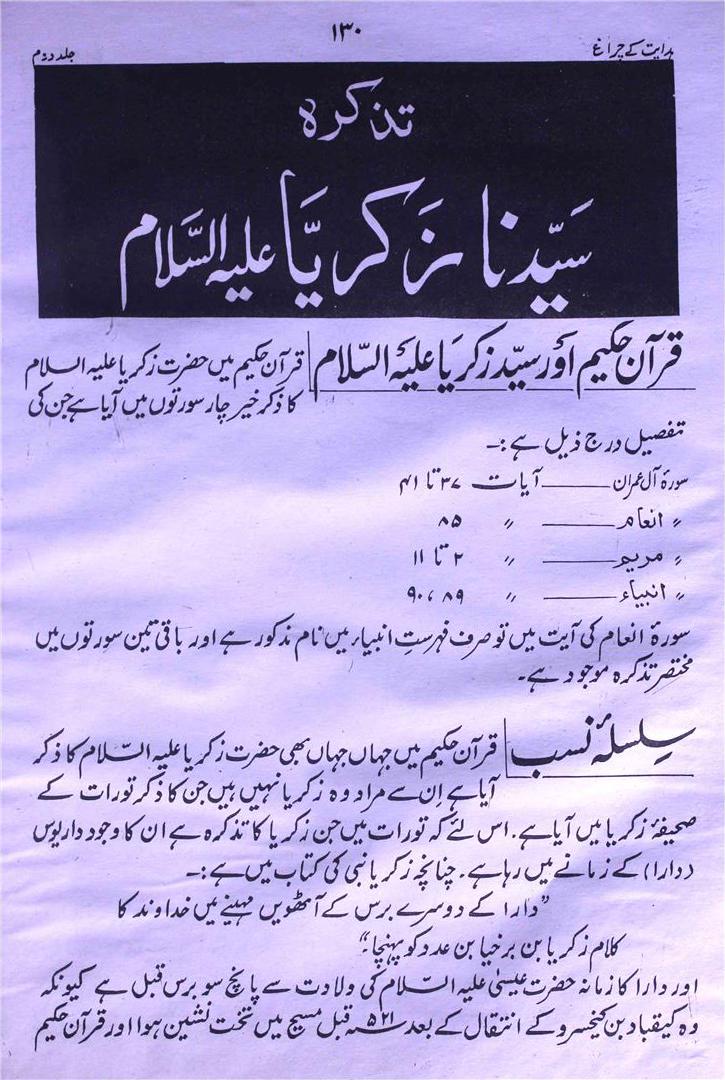 ۱۳۰
ہدایت کے چراغ
جلد دوم
تذکرہ
سَیّدنا زَکریَّا علیہِ السَّلام
قرآن حکیم اور سیّد زکریا علیہ السّلام
قرآن حکیم میں حضرت زکریا علیہ السلام
کا ذکر خیر چار سورتوں میں آیا ہے جن کی
تفصیل درج ذیل ہے :۔
سورۂ آل عمران ـــــــ آیات ۳۷ تا ۴۱
〃 انعام ـــــــ 〃 ۸۵
〃 مریم ـــــــ 〃 ۲ تا ۱۱
〃 انبیاء ـــــــ 〃 ۸۹ ، ۹۰
سورۂ انعام کی آیت میں تو صرف فہرستِ انبیاء میں نام مذکور ہے اور باقی تین سورتوں میں
مختصر تذکرہ موجود ہے۔
سلسلۂ نسب
قرآن حکیم میں جہاں جہاں بھی حضرت زکریا علیہ السّلام کا ذکر
آیا ہے اِن سے مراد وہ زکریا نہیں ہیں جن کا ذکر تورات کے
صحیفۂ زکریا میں آیا ہے۔ اس لئے کہ تورات میں جن زکریا کا تذکرہ ہے ان کا وجود داریوس
(دارا) کے زمانے میں رہا ہے۔ چنانچہ زکریا نبی کی کتاب میں ہے :۔
"دارا کے دوسرے برس کے آٹھویں مہینے میں خداوند کا
کلام زکریا بن برخیا بن عدد کو پہنچا۔"
اور دارا کا زمانہ حضرت عیسیٰ علیہ السّلام کی ولادت سے پانچ سو برس قبل ہے کیونکہ
وہ کیقباد بن کیخسرو کے انتقال کے بعد ۵۲۱؁ قبل مسیح میں تخت نشین ہوا اور قرآن حکیم